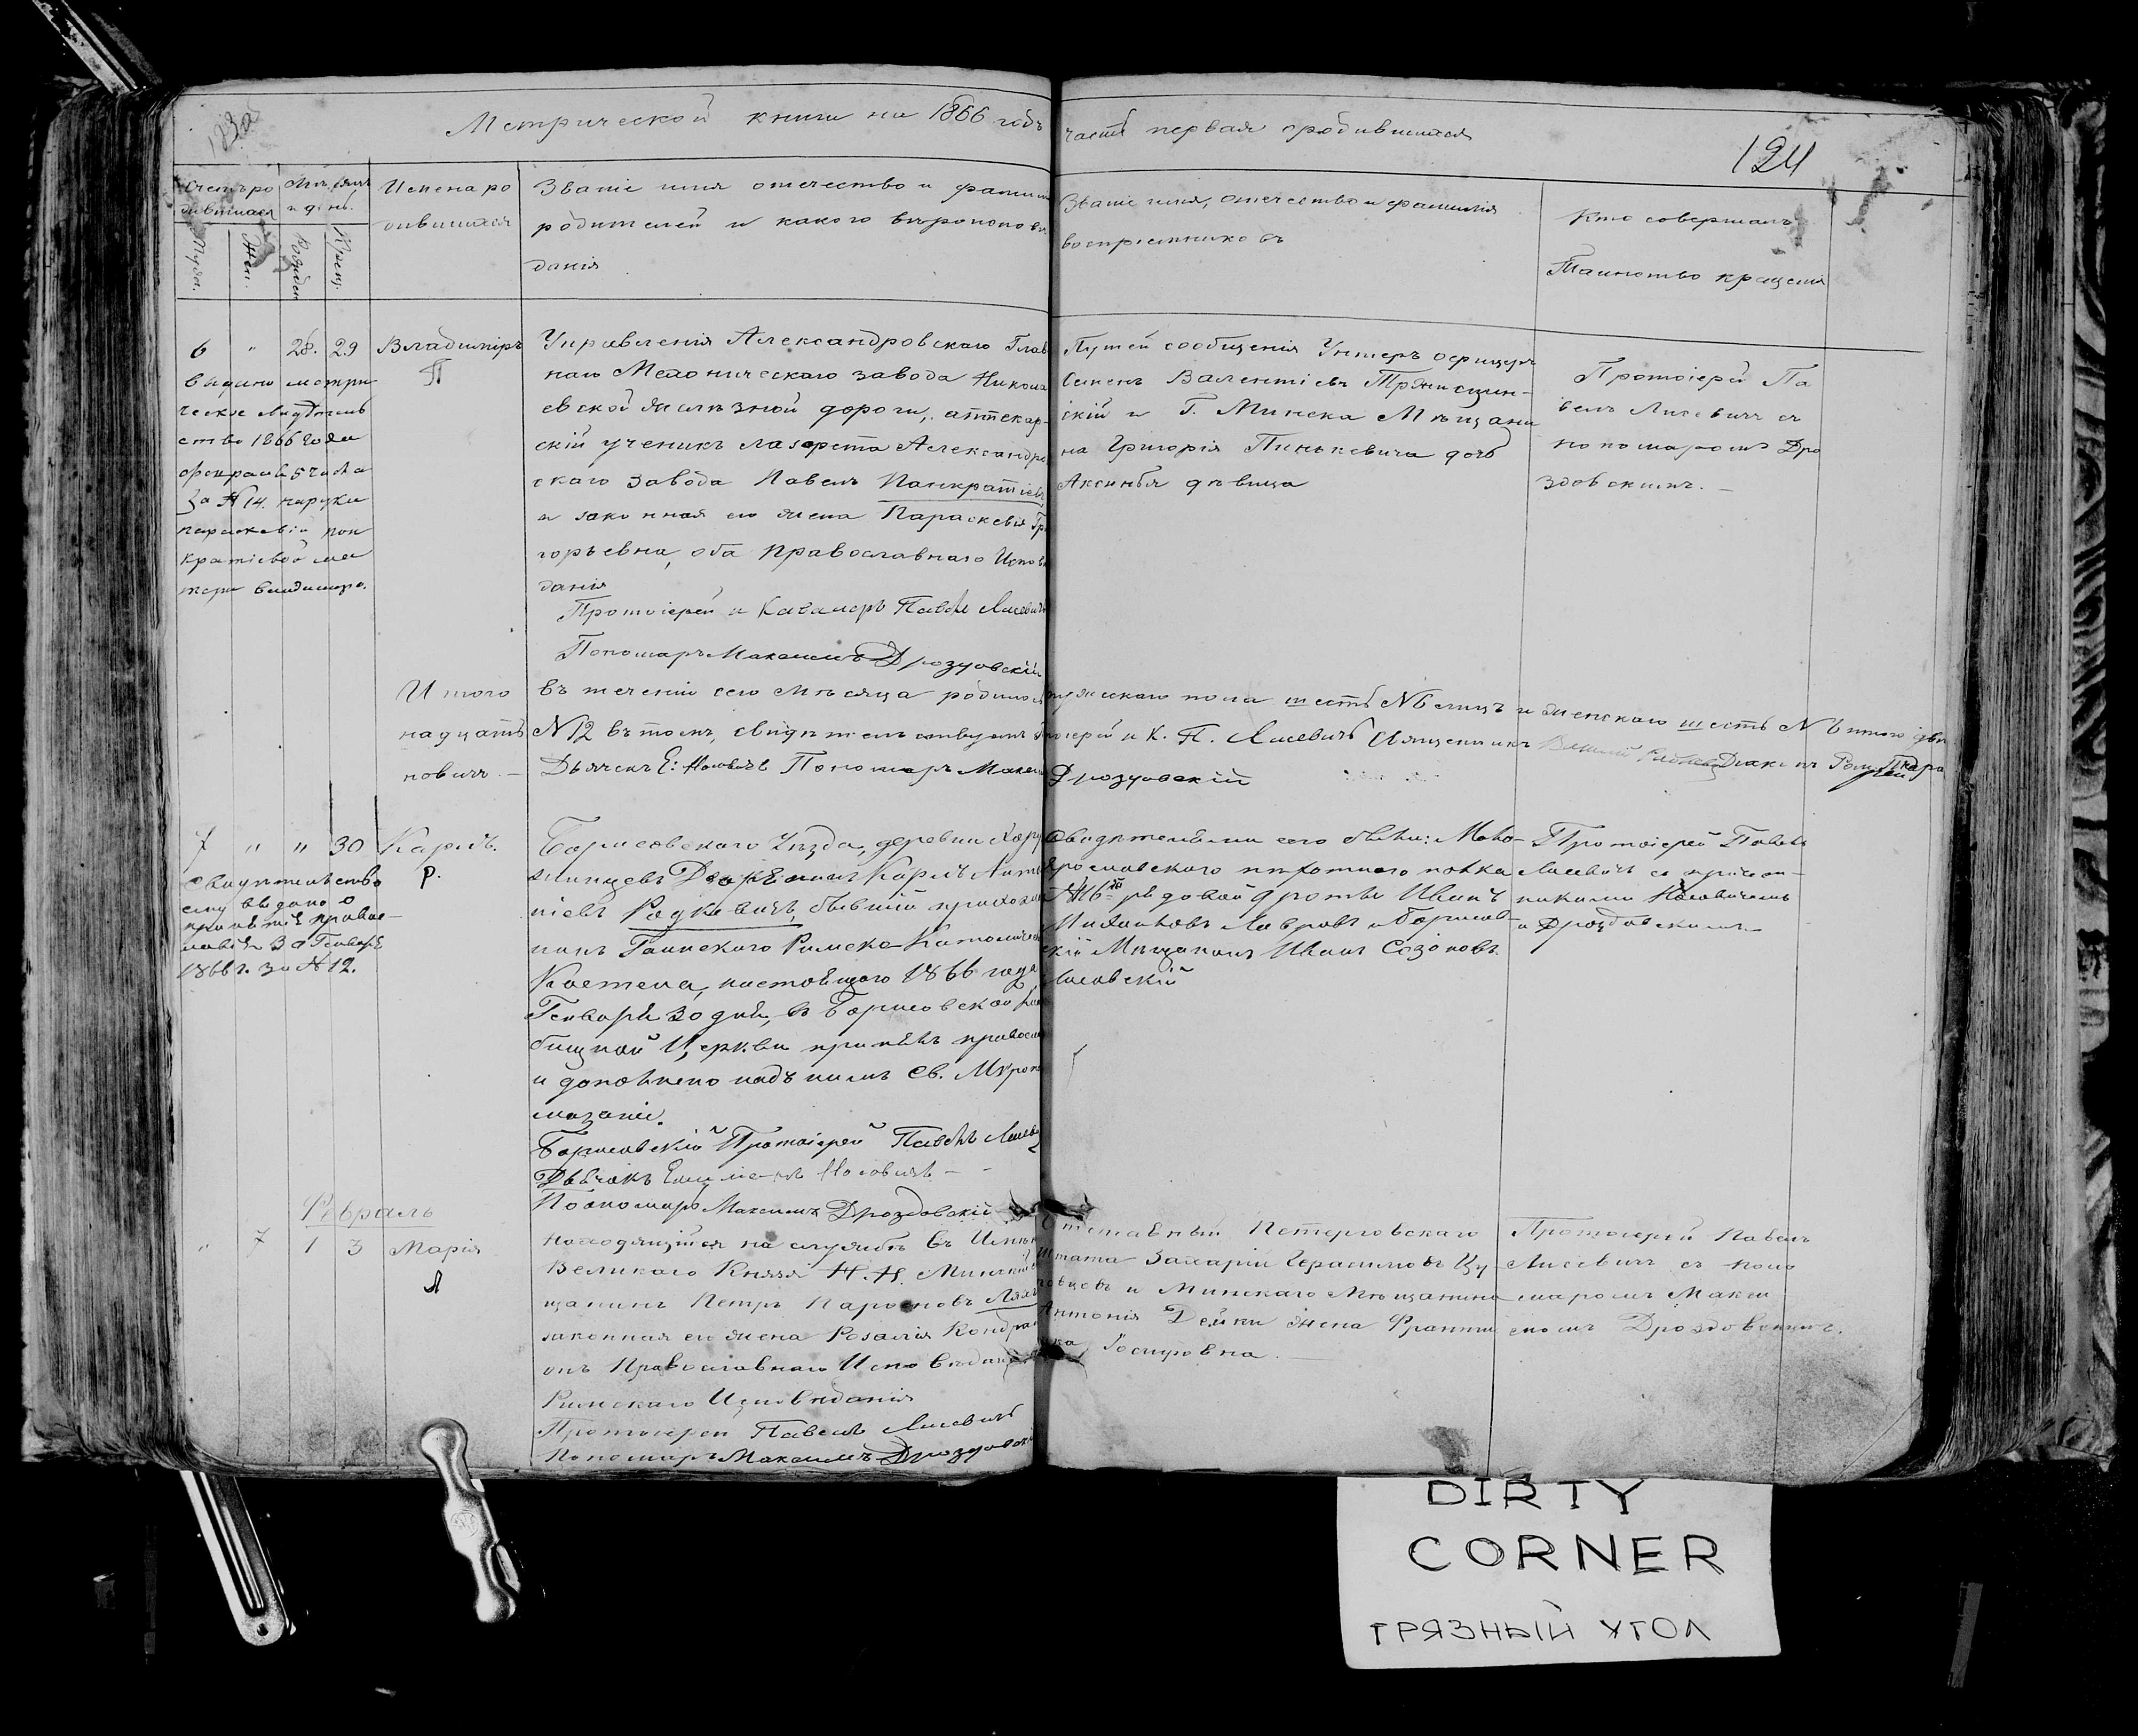 Метрической книги на 1866 годъ
часть первая о родившихся
124
Имена ро
дившихся
Званіе имя отчество и фамилія
родителей и какого вѣроиспове
данія
Званіе имя, отчество и фамилія
воспріемниковъ
Кто совершалъ
Таинство крещенія
Муж.
Жен.
Рожден
Крещ.
6 " 28. 29 Владимiръ
П
выдано метри
ческое свидѣтель
ство 1866 года
февраля 5 числа
за № 14. на руки
параскевіи пан
кратіевой ма
тери владимира.
Управленія Александровскаго Глав
наго Механическаго завода Никола
евской желѣзной дороги, аптекар
скій ученикъ лазарета Александро
скаго завода Павелъ Панкратіевъ
и законная его жена Параскевія Гри
горьевна, оба православнаго Испове
данія
Протоіерей и Кавалеръ Павелъ Лисевичъ
Пономарь Максимъ Дроздовскій
Путей сообщенія Унтеръ офицеръ
Семенъ Валентіевъ
скій и Г. Минска Мѣщани
на Григорія Пинькевича дочь
Аксинья дѣвица
Протоіерей Па
велъ Лисевичъ съ
пономаремъ Дро
здовскимъ.
Итого въ теченіи сего мѣсяца родилось мужескаго пола шесть №6 лицъ и женскаго шесть № 6 итого двѣ
надцать №12 въ томъ, свидѣтельствуемъ Протоіерей и К. П. Лисевичъ Священникъ Діаконъ
новичъ. Дьячекъ Е: Носовичъ Пономарь Максимъ Дроздовскій
7 " " 30 Карлъ.
Р.
свидѣтельство
ему выдано о
принятіи право
славія 30 Генваря
1866 г. за № 12.
Борисовскаго Уѣзда, деревни
Карлъ
Радкевичъ, бывшій прихожа
нинъ Гаинскаго Римско-Католическаго
Костела, настоящаго 1866 года
Генваря 30 дня, въ Борисовской
Церкви принялъ правосла
и дополнено надъ нимъ Св. Мvропо
мазаніе.
Борисовскій Протоіерей Павелъ Лисевичъ
Дьячокъ Носовичъ
Пономарь Максимъ Дроздовскій
Свидѣтелями сего были: Мало
Ярославскаго пѣхотнаго полка
рядовой 9 роты Иванъ
Лавровъ и Борисов
скій Мѣщанинъ Иванъ Сазоновъ
Лисовскій
Протоіерей Павелъ
Лисевичъ съ причет
никами Носовичемъ
и Дроздовскимъ
Февраль
" 7 1 3 Марія
Л
находящійся на службѣ въ Имѣніи
Великаго Князя Н. Н. Минскій мѣ
щанинъ Петръ
законная его жена Розалія
онъ Православнаго Исповѣданія
Римскаго Исповѣданія
Протоіерей Павелъ Лисевичъ
Пономарь Максимъ Дроздовскій
Отставный Петергофскаго
Штата Захарій Герасимовъ
и Минскаго Мѣщанина
Антонія Дейки жена Франци
ка
Протоіерей Павелъ
Лисевичъ съ поно
маремъ Макси
момъ Дроздовскимъ.
DIRTY
CORNER
ГРЯЗНЫЙ УГОЛ